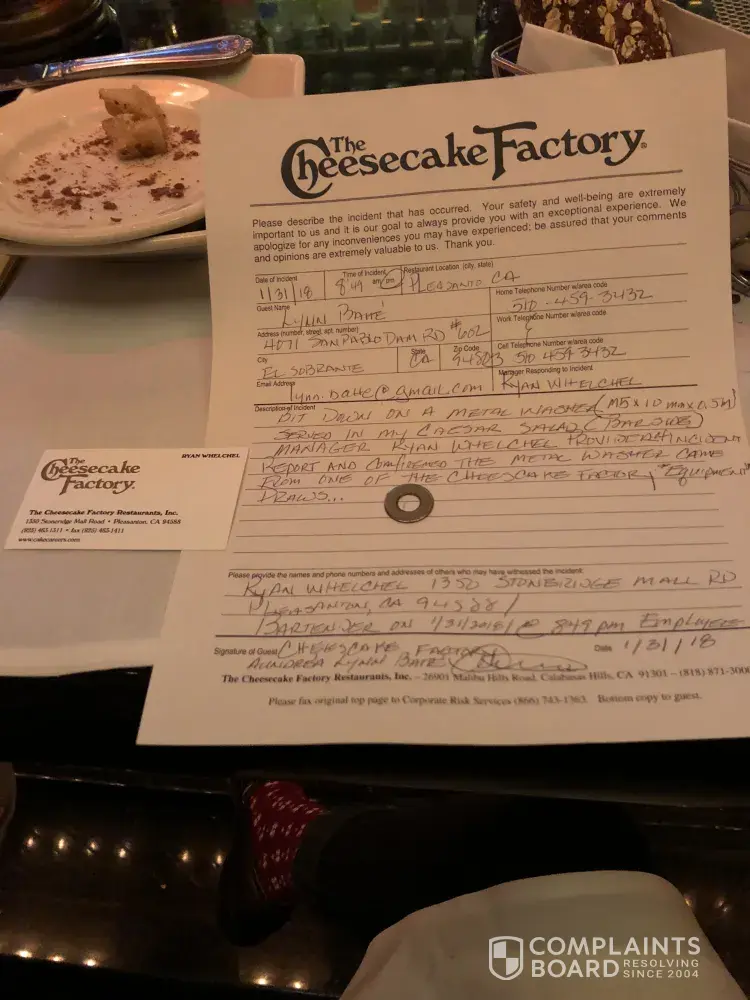 The
Cheesecake Factory®
Please describe the incident that has occurred. Your safety and well-being are extremely
important to us and it is our goal to always provide you with an exceptional experience. We
apologize for any inconveniences you may have experienced; be assured that your comments
and opinions are extremely valuable to us. Thank you.
Date of Incident
Time of Incident
Restaurant Location (city, state)
1/31/18
8:49 am/pm
CA
Guest Name
Home Telephone Number w/area code
LYNN BAHE
510-459-3432
Address (number, street, apt. number)
Work Telephone Number w/area code
4071 SAN PABLO DAM RD #602
City
State
Zip Code
Cell Telephone Number w/area code
EL SOBRANTE
CA
94803
510 459 3432
Email Address
Manager Responding to Incident
lynn.bahe@gmail.com
RYAN WHELCHEL
Description of Incident
BIT DOWN ON A METAL WASHER (M5 x 10
SERVED IN MY CAESAR SALAD
MANAGER RYAN WHELCHEL PROVIDED INCIDENT
REPORT AND CONFIRMED THE METAL WASHER CAME
FROM ONE OF THE CHEESCAKE FACTORY "EQUIPMENT"
DRAWS...
Please provide the names and phone numbers and addresses of others who may have witnessed the incident:
RYAN WHELCHEL 1350 STONERIDGE MALL RD
PLEASANTON, CA 94588/
BARTENDER ON 1/31/2018/@ 849 pm Employees
CHEESCAKE FACTORY
Signature of Guest
Date 1/31/18
AUNDREA LYNN BAHE
The Cheesecake Factory Restaurants, Inc. – 26901 Malibu Hills Road, Calabasas Hills, CA 91301 – (818) 871-3000
Please fax original top page to Corporate Risk Services (866) 743-1363. Bottom copy to guest.
RYAN WHELCHEL
The
Cheesecake
Factory.
The Cheesecake Factory Restaurants, Inc.
1350 Stoneridge Mall Road • Pleasanton, CA 94588
(925) 463-1311 • fax (925) 463-1411
www.cakecareers.com
COMPLAINTS
BOARD RESOLVING
SINCE 2004